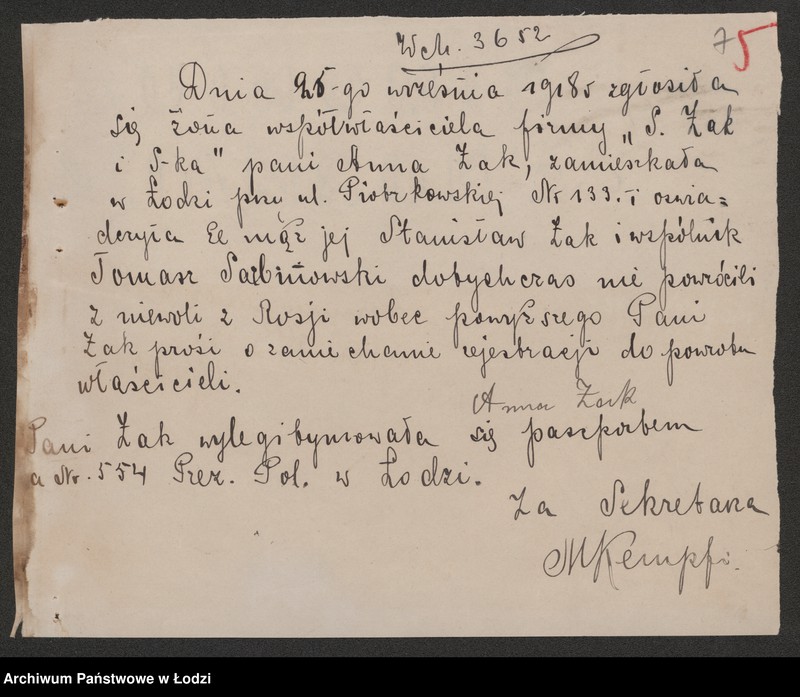 Wch. 3652
75
Dnia 25-go września 1918 r zgłosiła
się żona współwłaściciela firmy „S. Żak
i S-ka" pani Anna Żak, zamieszkała
w Łodzi przy ul. Piotrkowskiej Nr 133. i oswia=
dczyła że mąż jej Stanisław Żak i wspólnik
Tomasz dotychczas nie powrócili
z niewoli z Rosji wobec powyższego Pani
Żak prosi o zaniechanie rejestracji do powrotu
właścicieli.
Anna Żak
Pani Żak wylegitymowała się paszportem
a Nr. 554 Prez. Pol. w Łodzi.
Za Sekretarza
MKempfi.
Archiwum Państwowe w Łodzi